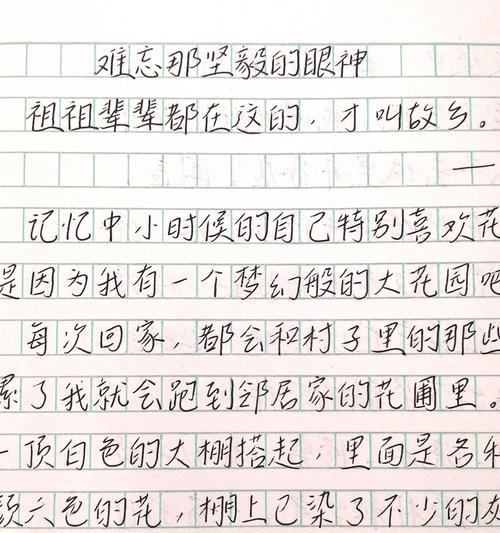 难忘那坚毅的眼神
祖祖辈辈都在这的，才叫故乡。
——
记忆中小时候的自己特别喜欢花
是因为我有一个梦幻般的大花园吧
每次回家，都会和村子里的那些
累了我就会跑到邻居家的花圃里。
一顶白色的大棚搭起，里面是各
颜六色的花，棚上已染了不少的灰